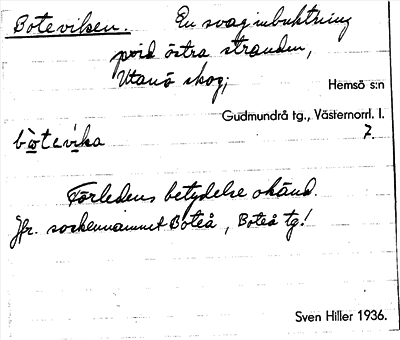 Boteviken. En svag inbuktning
vid östra stranden,
Utanö skog;
Hemsö s:n
Gudmundrå tg., Västernorrl. l.
7.
Förledens betydelse okänd.
Jfr. sockennamnet Boteå, Boteå tg!
Sven Hiller 1936.